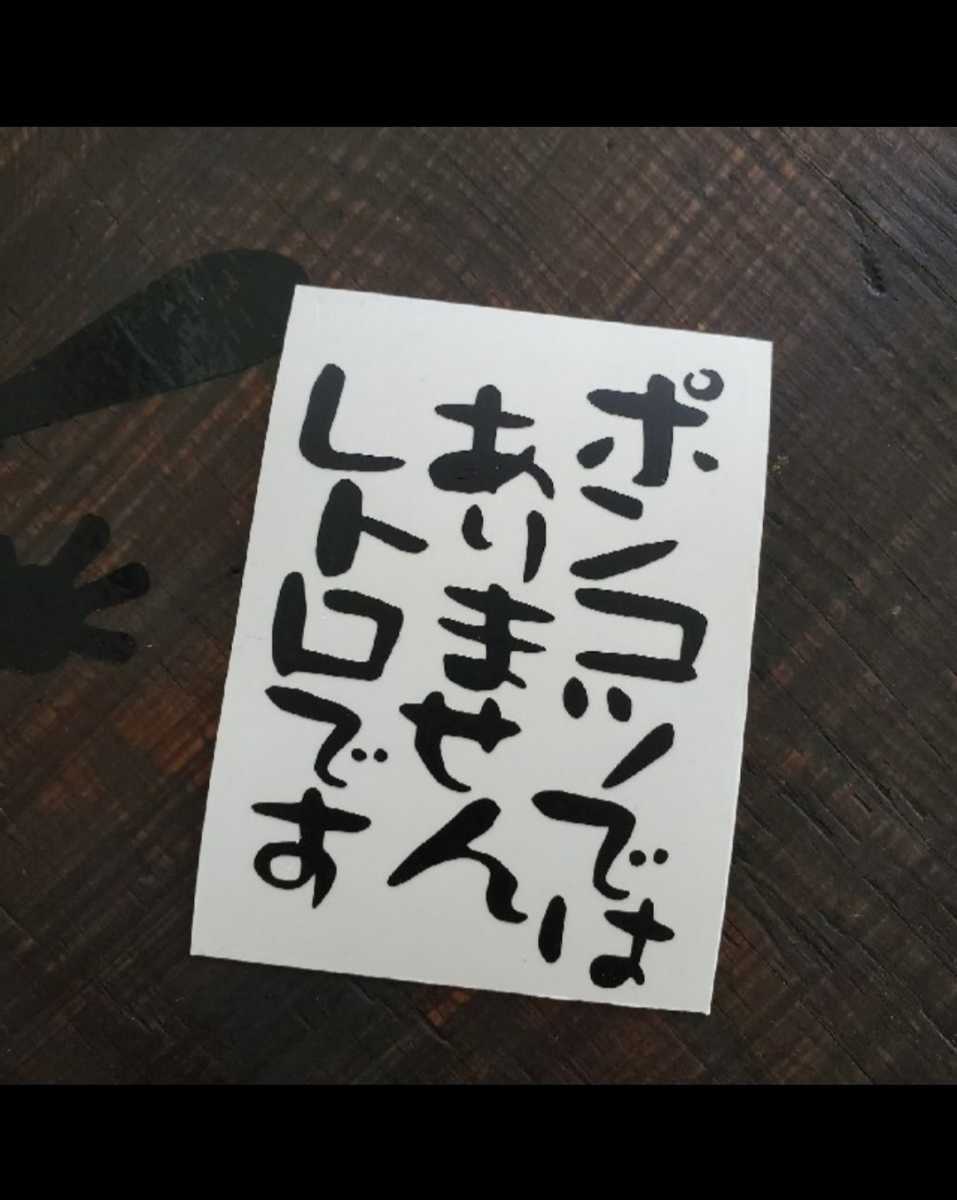 ポンコツでは
ありません
レトロです